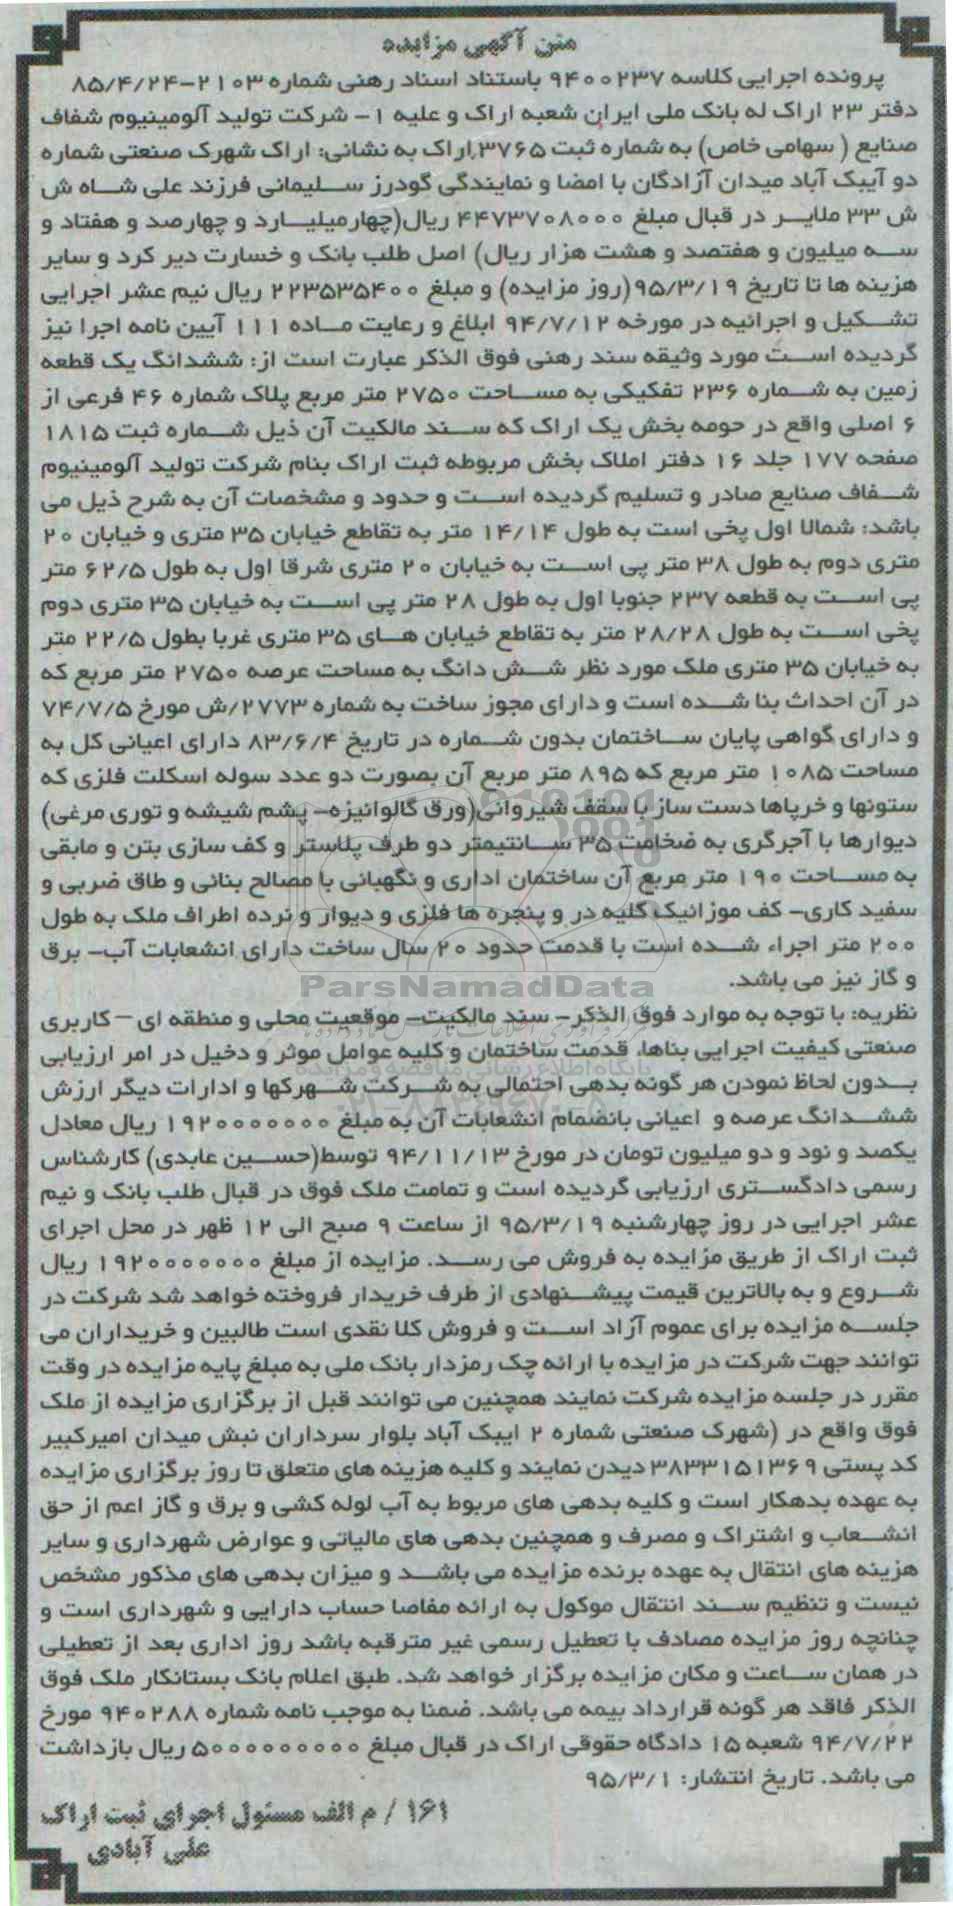 متن آگهی مزایده
پرونده اجرایی کلاسه ۹۴۰۰۲۳۷ باستناد اسناد رهنی شماره ۲۱۰۳-۸۵/۴/۲۴
دفتر ۲۳ اراک له بانک ملی ایران شعبه اراک و علیه ۱- شرکت تولید آلومینیوم شفاف
صنایع ( سهامی خاص) به شماره ثبت ۳۷۶۵ اراک به نشانی: اراک شهرک صنعتی شماره
دو آیبک آباد میدان آزادگان با امضا و نمایندگی گودرز سلیمانی فرزند علی شاه ش
ش ۳۳ ملایر در قبال مبلغ ۴۴۷۳۷۰۸۰۰۰ ریال(چهارمیلیارد و چهارصد و هفتاد و
سه میلیون و هفتصد و هشت هزار ریال) اصل طلب بانک و خسارت دیر کرد و سایر
هزینه ها تا تاریخ ۹۵/۳/۱۹(روز مزایده) و مبلغ ۲۲۳۵۳۵۴۰۰ ریال نیم عشر اجرایی
تشکیل و اجرائیه در مورخه ۹۴/۷/۱۲ ابلاغ و رعایت ماده ۱۱۱ آیین نامه اجرا نیز
گردیده است مورد وثیقه سند رهنی فوق الذکر عبارت است از: ششدانگ یک قطعه
زمین به شماره ۲۳۶ تفکیکی به مساحت ۲۷۵۰ متر مربع پلاک شماره ۴۶ فرعی از
۶ اصلی واقع در حومه بخش یک اراک که سند مالکیت آن ذیل شماره ثبت ۱۸۱۵
صفحه ۱۷۷ جلد ۱۶ دفتر املاک بخش مربوطه ثبت اراک بنام شرکت تولید آلومینیوم
شفاف صنایع صادر و تسلیم گردیده است و حدود و مشخصات آن به شرح ذیل می
باشد: شمالا اول پخی است به طول ۱۴/۱۴ متر به تقاطع خیابان ۳۵ متری و خیابان ۲۰
متری دوم به طول ۳۸ متر پی است به خیابان ۲۰ متری شرقا اول به طول ۶۲/۵ متر
پی است به قطعه ۲۳۷ جنوبا اول به طول ۲۸ متر پی است به خیابان ۳۵ متری دوم
پخی است به طول ۲۸/۲۸ متر به تقاطع خیابان های ۳۵ متری غربا بطول ۲۲/۵ متر
به خیابان ۳۵ متری ملک مورد نظر شش دانگ به مساحت عرصه ۲۷۵۰ متر مربع که
در آن احداث بنا شده است و دارای مجوز ساخت به شماره ۲۷۷۳/ش مورخ ۷۴/۷/۵
و دارای گواهی پایان ساختمان بدون شماره در تاریخ ۸۳/۶/۴ دارای اعیانی کل به
مساحت ۱۰۸۵ متر مربع که ۸۹۵ متر مربع آن بصورت دو عدد سوله اسکلت فلزی که
ستونها و خرپاها دست ساز با سقف شیروانی(ورق گالوانیزه- پشم شیشه و توری مرغی)
دیوارها با آجرگری به ضخامت ۳۵ سانتیمتر دو طرف پلاستر و کف سازی بتن و مابقی
به مساحت ۱۹۰ متر مربع آن ساختمان اداری و نگهبانی با مصالح بنائی و طاق ضربی و
سفید کاری- کف موزائیک کلیه در و پنجره ها فلزی و دیوار و نرده اطراف ملک به طول
۲۰۰ متر اجراء شده است با قدمت حدود ۲۰ سال ساخت دارای انشعابات آب- برق
و گاز نیز می باشد.
ParsNamadData
نظریه: با توجه به موارد فوق الذکر- سند مالکیت- موقعیت محلی و منطقه ای – کاربری
صنعتی کیفیت اجرایی بناها، قدمت ساختمان و کلیه عوامل موثر و دخیل در امر ارزیابی
پایگاه اطلاع رسانی مناقصه و مزایده
بدون لحاظ نمودن هر گونه بدهی احتمالی به شرکت شهرکها و ادارات دیگر ارزش
ششدانگ عرصه و اعیانی بانضمام انشعابات آن به مبلغ ۱۹۲۰۰۰۰۰۰۰ ریال معادل
یکصد و نود و دو میلیون تومان در مورخ ۹۴/۱۱/۱۳ توسط(حسین عابدی) کارشناس
رسمی دادگستری ارزیابی گردیده است و تمامت ملک فوق در قبال طلب بانک و نیم
عشر اجرایی در روز چهارشنبه ۹۵/۳/۱۹ از ساعت ۹ صبح الی ۱۲ ظهر در محل اجرای
ثبت اراک از طریق مزایده به فروش می رسد. مزایده از مبلغ ۱۹۲۰۰۰۰۰۰۰ ریال
شروع و به بالاترین قیمت پیشنهادی از طرف خریدار فروخته خواهد شد شرکت در
جلسه مزایده برای عموم آزاد است و فروش کلا نقدی است طالبین و خریداران می
توانند جهت شرکت در مزایده با ارائه چک رمزدار بانک ملی به مبلغ پایه مزایده در وقت
مقرر در جلسه مزایده شرکت نمایند همچنین می توانند قبل از برگزاری مزایده از ملک
فوق واقع در (شهرک صنعتی شماره ۲ ایبک آباد بلوار سرداران نبش میدان امیرکبیر
کد پستی ۳۸۳۳۱۵۱۳۶۹ دیدن نمایند و کلیه هزینه های متعلق تا روز برگزاری مزایده
به عهده بدهکار است و کلیه بدهی های مربوط به آب لوله کشی و برق و گاز اعم از حق
انشعاب و اشتراک و مصرف و همچنین بدهی های مالیاتی و عوارض شهرداری و سایر
هزینه های انتقال به عهده برنده مزایده می باشد و میزان بدهی های مذکور مشخص
نیست و تنظیم سند انتقال موکول به ارائه مفاصا حساب دارایی و شهرداری است و
چنانچه روز مزایده مصادف با تعطیل رسمی غیر مترقبه باشد روز اداری بعد از تعطیلی
در همان ساعت و مکان مزایده برگزار خواهد شد. طبق اعلام بانک بستانکار ملک فوق
الذکر فاقد هر گونه قرارداد بیمه می باشد. ضمنا به موجب نامه شماره ۹۴۰۲۸۸ مورخ
۹۴/۷/۲۲ شعبه ۱۵ دادگاه حقوقی اراک در قبال مبلغ ۵۰۰۰۰۰۰۰۰۰ ریال بازداشت
می باشد. تاریخ انتشار: ۹۵/۳/۱
۱۶۱ / م الف مسئول اجرای ثبت اراک
علی آبادی